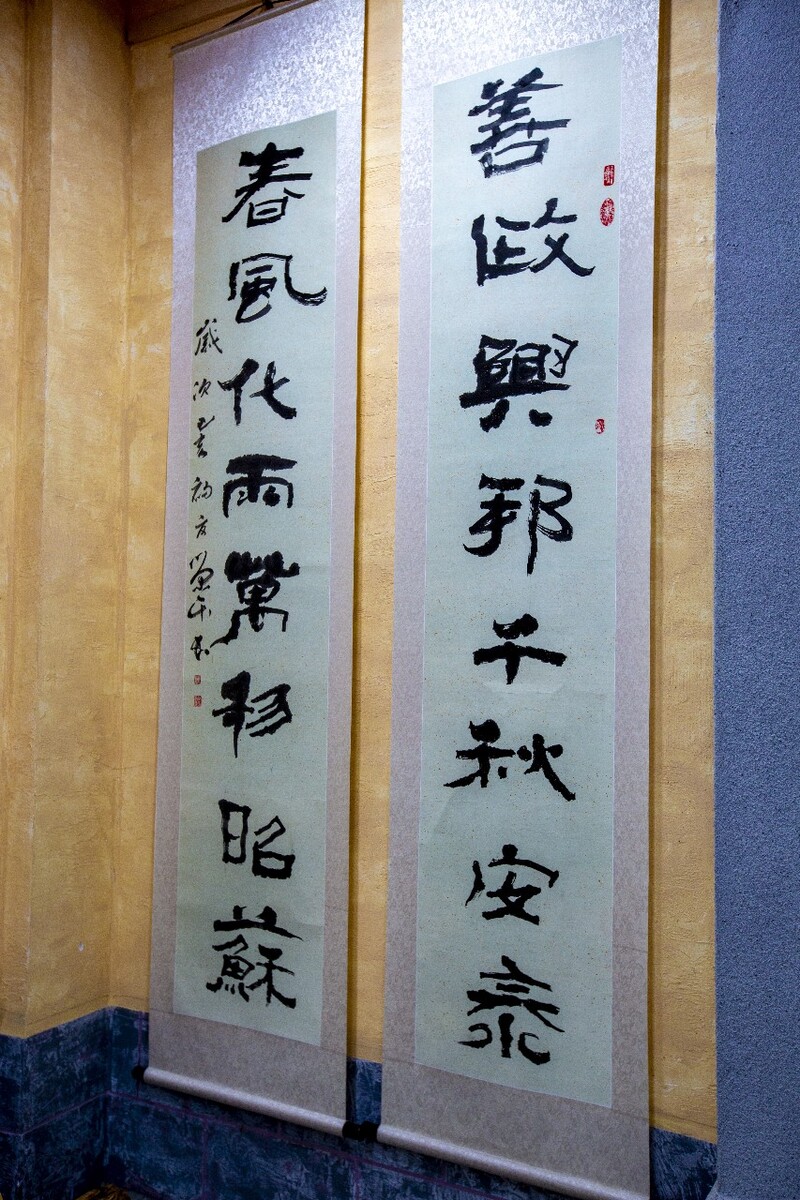 善政興邦千秋安泰
春風化雨萬物昭蘇
歲次